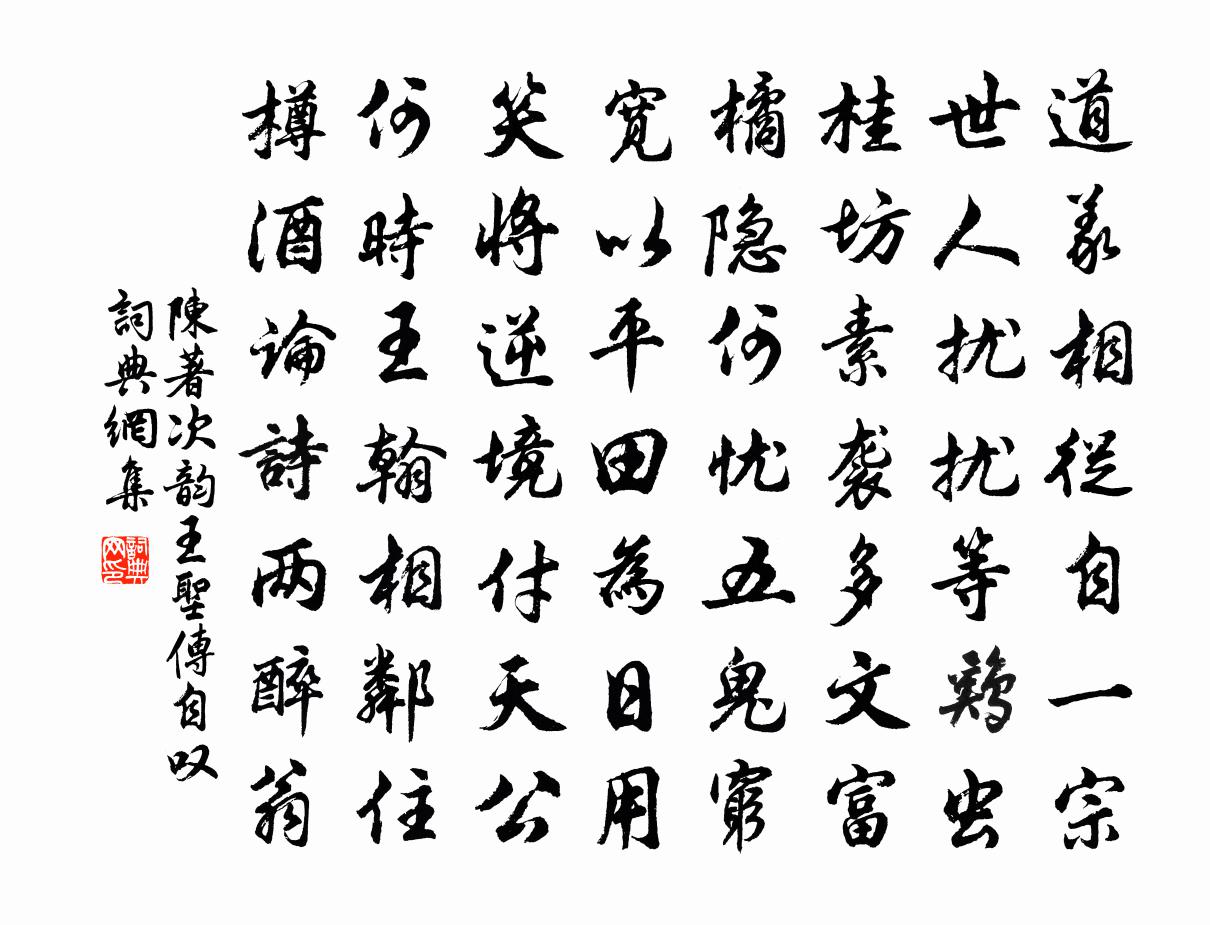 道義相從自一宗
世人扰扰等鷄虫
桂坊素袭多文富
橘隐何忧五鬼窮
寬以平田為日用
笑將逆境付天公
何時王翰相鄰住
樽酒論詩两醉翁
陳著次韵王聖傳自叹
詞典網集
詞典网印